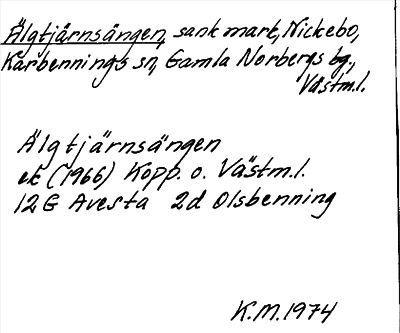 Älgtjärnsängen, sank mark, Nickebo,
Karbennings sn, Gamla Norbergs bg.,
Västm.l.
Älgtjärnsängen
ek (1966) Kopp. o. Västm.l.
12G Avesta 2d Olsbenning
K.M. 1974